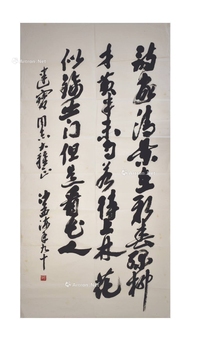 诗家清景在新春绿柳
才黄半未匀若待上林花
似锦出门但是看花人
建寶同志大雅正
涛年九十